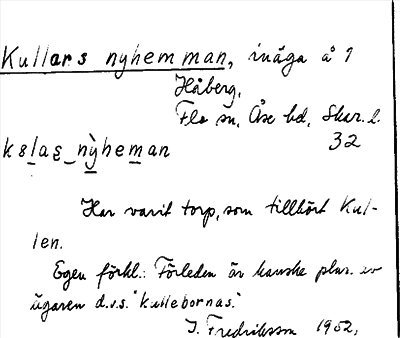 Kullars nyhemman, inäga å 1
Håberg,
Flo sn, Åse hd, Skar. l.
32
kslas_nỳheman
Har varit torp, som tillhört Kul-
len.
Egen förkl.: Förleden är kanske plur. av
ägaren d.v.s. "kullebornas."
J. Fredriksson 1952,